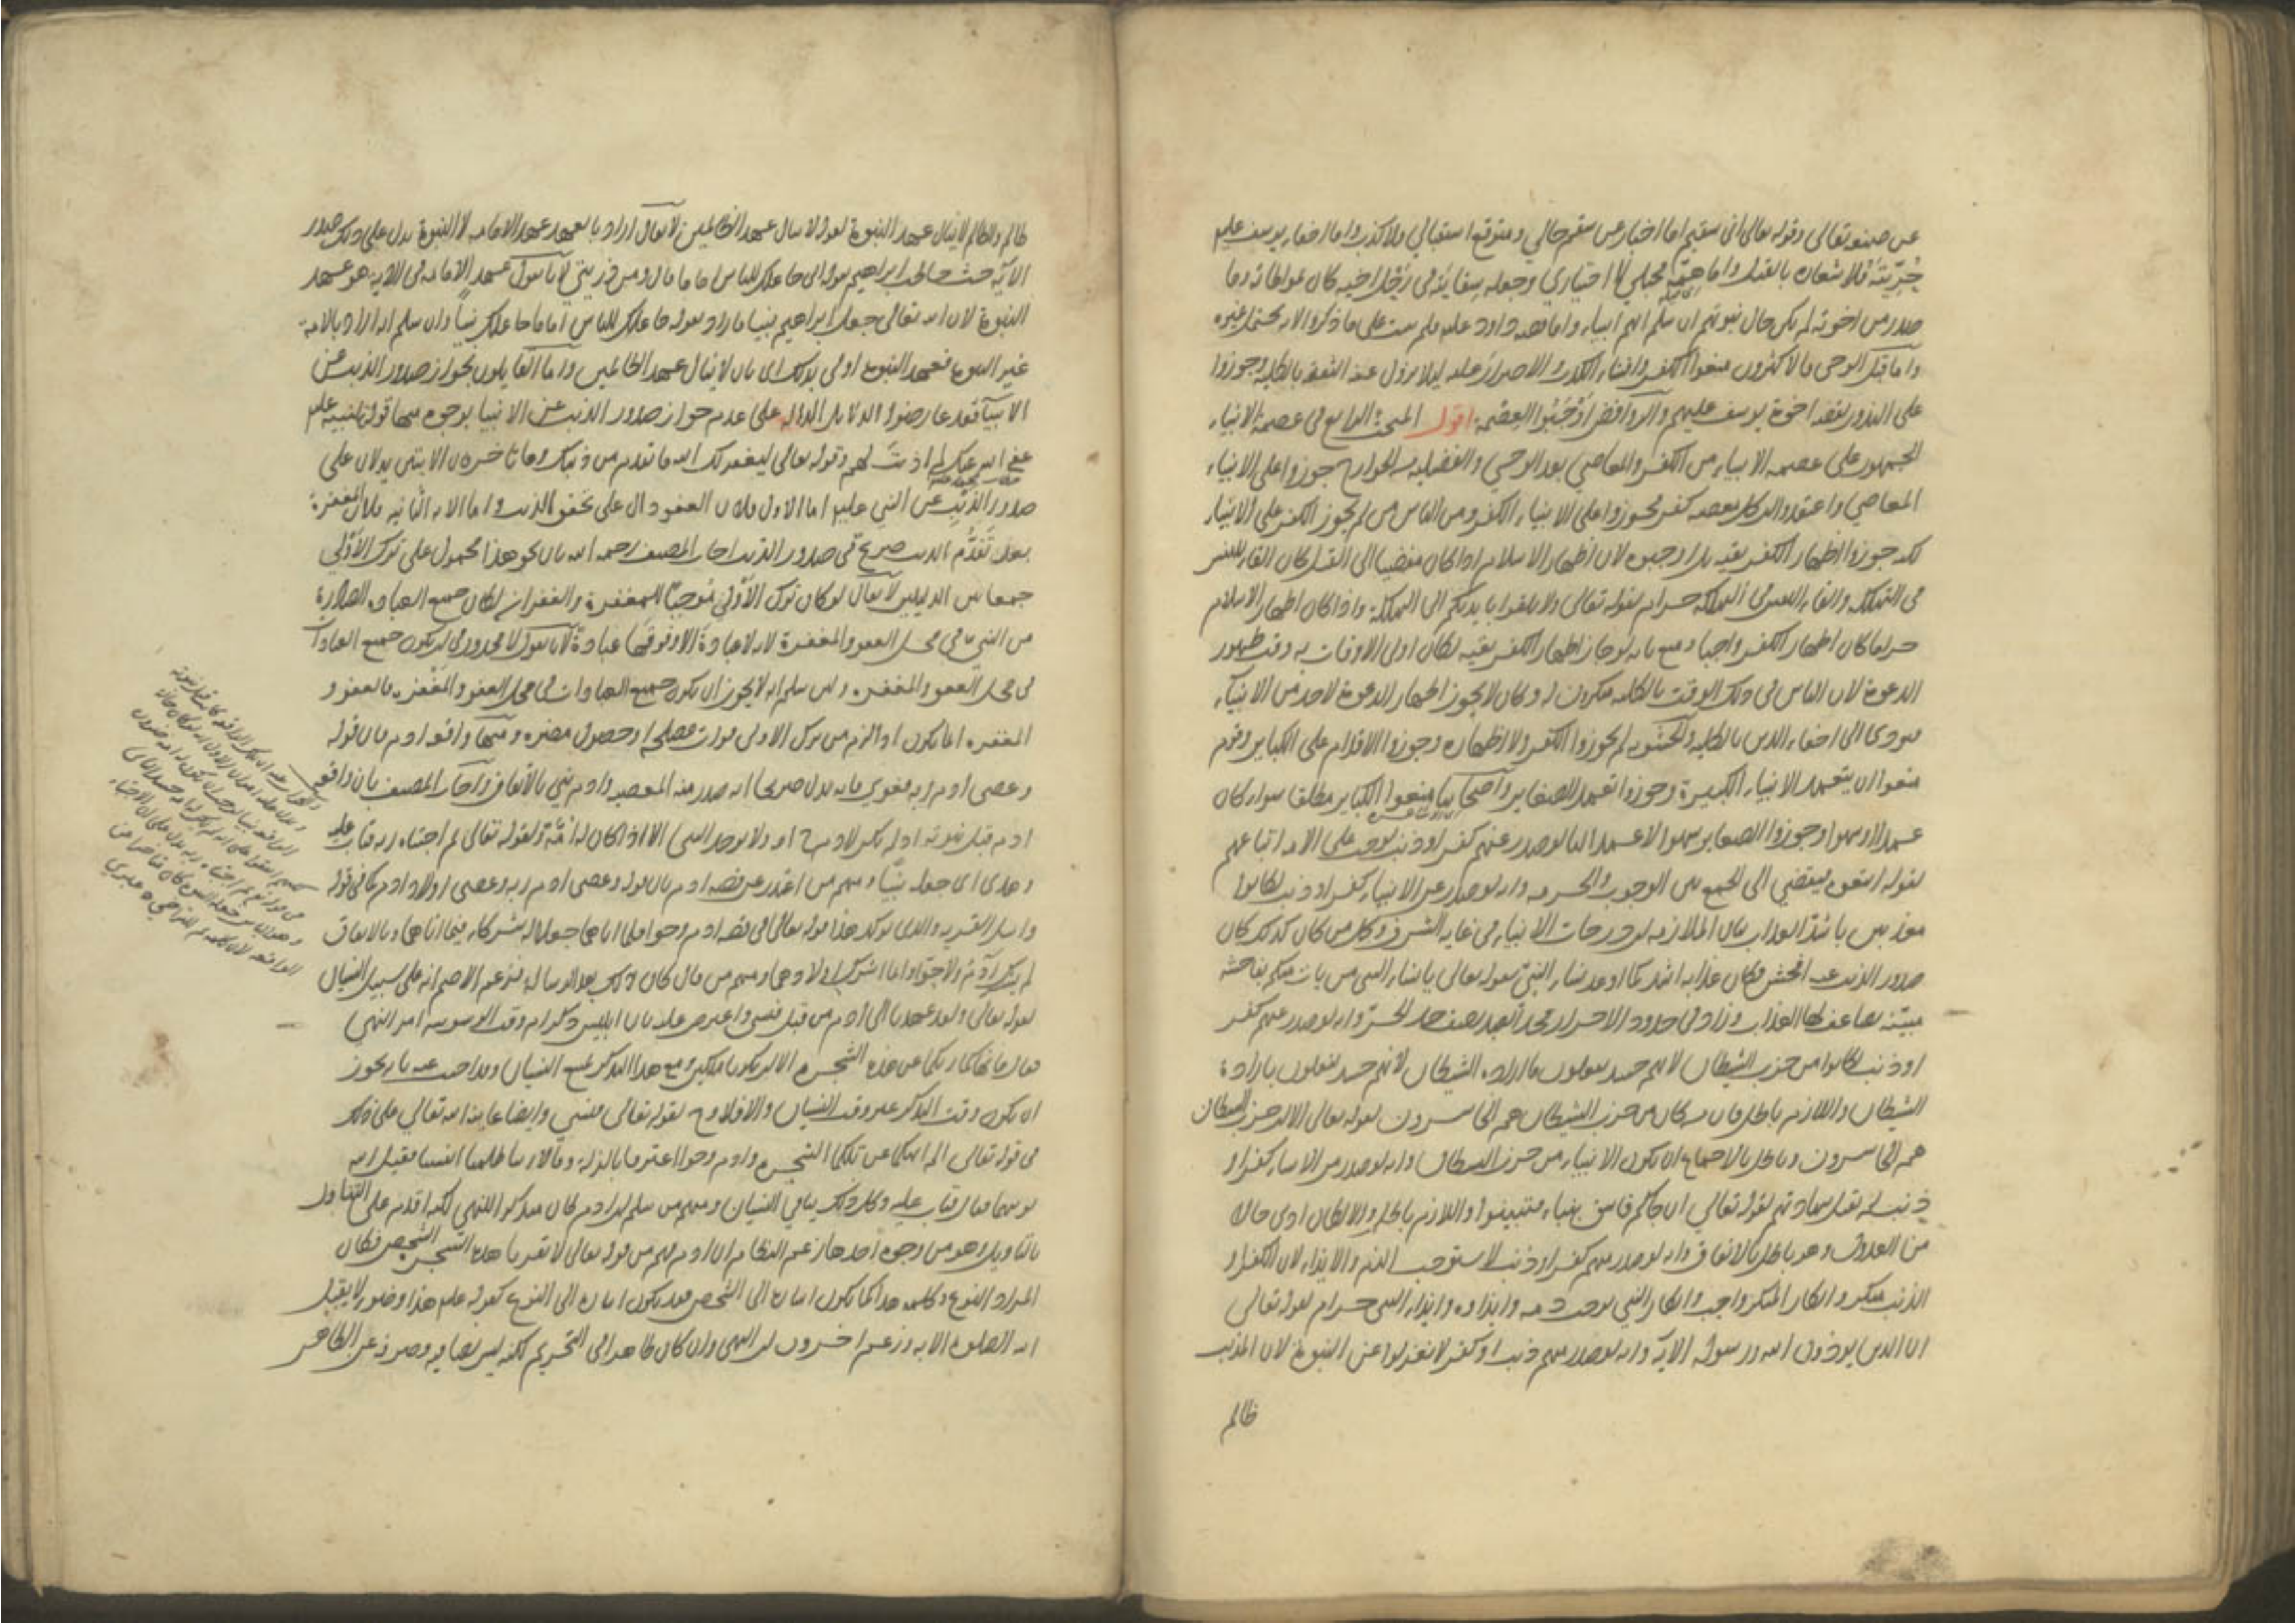 عن صنعه تعالى وقوله تعالى انى سقيم اما اخبار عن سقم حالي ومتوقع استقبالي ولا كذب واما اخفاء يوسف عليه
حُرِّيتَهُ فلاشعاره بالقتل واما همّه فجبلي لا اختياري وجعله سقايته في رَحْل اخيه كان لمواطاته وما
صدر من اخوته لم يكن حال نبوتهم ان سلم انهم انبياء واما قصه داود عليه فلم يثبت على ما ذكروا الايه يحتمل غيره
واما قبل الوحى فالاكثرون منعوا الكفر وافشاء الكذب والاصرار عليه ليلا يزول عنه الثقه بالكليه وجوزوا
على الندور لقصه اخوة يوسف عليهم والروافض اَوْجَبُوا العِصْمة اقول المبحث الرابع في عصمة الانبياء
الجمهور على عصمه الانبياء من الكفر والمعاصي بعد الوحي والفضيليه من الخوارج جوزوا على الانبياء
المعاصي واعتقدوا ان كل معصيه كفر فجوزوا على الانبياء الكفر ومن الناس من لم يجوز الكفر على الانبياء
لكنه جوزوا اظهار الكفر تقيه بل اوجبوه لان اظهار الاسلام اذا كان مفضيا الى القتل كان القاء للنفس
في التهلكه والقاء النفس في التهلكه حرام لقوله تعالى ولا تلقوا بايديكم الى التهلكة واذا كان اظهار الاسلام
حراما كان اظهار الكفر واجبا ومنع بانه لو جاز اظهار الكفر تقيه لكان اولى الاوقات به وقت ظهور
الدعوة لان الناس في ذلك الوقت بالكليه منكرون له وكان لا يجوز اظهار الدعوة لاحد من الانبياء
فيودى الى اخفاء الدين بالكليه والحشويه لم يجوزوا الكفر ولا اظهاره وجوزوا الاقدام على الكباير وقوم
منعوا ان يتعمد الانبياء الكبيرة وجوزوا تعمد الصغاير واصحابنا منعوا الكباير مطلقا سواء كان
عمدا او سهوا وجوزوا الصغاير سهوا لا عمدا لنا لو صدر عنهم كفر او ذنب لوجب على الامه اتباعهم
لقوله اتبعوه فيفضي الى الجمع بين الوجوب والحرمه وانه لو صدر عن الانبياء كفر او ذنب لكانوا
معذبين باشد العذاب بيان الملازمه ان درجات الانبياء في غايه الشرف وكل من كان كذلك كان
صدور الذنب عنه افحش فكان عذابه اشد كما اوعد نساء النبي بقوله تعالى يا نساء النبى من يات منكم بفاحشه
مبيّنه يضاعف لها العذاب وزاد في حدود الاحرار فحد العبد نصف حد الحر وانه لو صدر عنهم كفر
او ذنب لكانوا من حزب الشيطان لانهم حينئذ يفعلون ما اراده الشيطان لانهم حينئذ يفعلون باراده
الشيطان واللازم باطل فان من كان من حزب الشيطان هم الخاسرون لقوله تعالى الا ان حزب الشيطان
هم الخاسرون وباطل بالاجماع ان يكون الانبياء من حزب الشيطان وانه لو صدر من الانبياء كفر او
ذنب لم تقبل شهادتهم لقوله تعالي ان جاكم فاسق بنباء فتبينوا واللازم باطل والا لكان ادنى حالا
من العدول وهو باطل بالاتفاق وانه لو صدر منهم كفر او ذنب لاستوجب الذم والايذاء لان الكفر او
الذنب منكر وانكار المنكر واجب وانكار النبي يوجب ذمه وايذاوه وايذاء النبى حرام لقوله تعالى
ان الذين يوذون الله ورسوله الايه وانه لو صدر منهم ذنب او كفر لانعزلوا عن النبوة لان المذنب
ظالم
ظالم والظالم لا ينال عهد النبوة لقوله لا ينال عهد الظالمين لا يقال اراد بالعهد عهد الامامه لا النبوة يدل على ذلك صدر
الآيه حيث خاطب ابراهيم بقوله انى جاعلك للناس اماما قال ومن ذريتي لانا نقول عهد الامامه فى الايه هو عهد
النبوة لان الله تعالى جعل ابراهيم نبيا فاراد بقوله جاعلك للناس اماما جاعلك نبياً وان سلم انه اراد بالامامه
غير النبوه فعهد النبوه اولى بذلك اى بان لا ينال عهد الظالمين واما القايلون بجواز صدور الذنب عن
الانبيآء فقد عارضوا الدلايل الدالة على عدم جواز صدور الذنب عن الانبيا بوجوه منها قوله لنبيه عليه
عفى الله عنك لم اذنت لهم وقوله تعالى ليغفر لك الله ما تقدم من ذنبك وما تاخر فان الايتين يدلان على
صدور الذنب عن النبي عليه اما الاولى فلان العفو دال على تحقق الذنب واما الايه الثانيه فلان المغفرة
بعد تَقَدُّم الذنب صريح فى صدور الذنب اجاب المصنف رحمه الله بان نحو هذا محمول على ترك الاَوْلى
جمعا بين الدليلين لا يقال لو كان ترك الاَوْلى مُوجباً للمغفرة والغفران لكان جميع العباده الصادرة
من النبي في محل العفو والمغفرة لانه لا عبادة الا وفوقها عبادة لانا نقول لا محذور في ان يكون جميع العبادات
في محل العفو والمغفره ولين سلم انه لا يجوز ان يكون جميع العبادات في محل العفو والمغفره فالعفو و
المغفره انما يكون اذا لزم من ترك الاولى فوات مصلحه او حصول مضره ومنها واقعه ادم فان قوله
وعصى ادم ربه فغوى فانه يدل صريحا انه صدر منه المعصيه وادم نبي بالاتفاق واجاب المصنف بان واقعه
ادم قبل نبوته اذ لم يكن لادم ح امه ولا يوجد النبى الا اذا كان له امّة ولقوله تعالى ثم اجتباه ربه فتاب عليه
وهدى اى جعله نبيّاً ومنهم من اعتذر عن قصه ادم بان قوله وعصى ادم ربه وعصى اولاد ادم كما فى قوله
واسال القريه والذى يوكد هذا قوله تعالى في قصه ادم وحوا فلما اتاهما جعلا له شركاء فيما اتاهما وبالاتفاق
لم يشرك آدَمُ ولا حوّا وانما اشرك اولادهما ومنهم من قال كان ذلك بعد الرساله فزعم الاصم انه على سبيل النسيان
لقوله تعالى ولقد عهدنا الى ادم من قبل فنسى واعترض عليه بان ابليس ذكر ادم وقت الوسوسه امر النهى
فقال ما نهاكما ربكما عن هذه الشجره الا ان تكونا ملكين ومع هذا التذكر يمتنع النسيان وقد اجيب عنه بانه يجوز
ان يكون وقت التذكر غير وقت النسيان والا فلا وجه لقوله تعالى فنسي وايضا عاتبه الله تعالي على ذلك
في قوله تعالى الم انهكما عن تلكما الشجره وادم وحوا اعترفا بالزله وقالا ربنا ظلمنا انفسنا فقبل الله
توبتهما فقال فتاب عليه وكل ذلك ينافي النسيان ومنهم من سلم ان ادم كان متذكرا للنهي لكنه اقدم على التناول
بالتاويل وهو من وجوه احدها زعم النظام ان ادم فهم من قوله تعالى لا تقربا هذه الشجرة الشخص فكان
المراد النوع وكلمه هذا كما يكون اشاره الى الشخص فقد يكون اشاره الى النوع كقوله عليه هذا وضوء لا يقبل
الله الصلوه الا به وزعم اخرون ان النهى وان كان ظاهرا فى التحريم لكنه ليس نصا فيه وصرف عن الظاهر